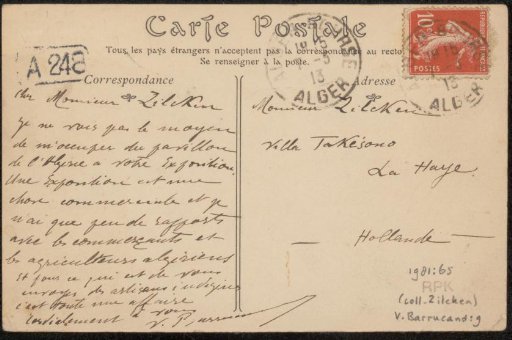 Carte Postale
Tous les pays étrangers n'acceptent pas la correspondance au recto
Se renseigner à la poste.
A 248
Correspondance
Cher Monsieur Zilcken
je ne vois pas le moyen
de m'occuper du pavillon
de l'Algérie à votre Exposition.
Une Exposition est une
chose commerciale et je
n'ai que peu de rapports
avec les commerçants et
les agriculteurs algériens
Et pour ce qui est de vous
envoyer des artisans indigènes
c'est toute une affaire
Cordialement à vous
V. Barrucand
Adresse
Monsieur Zilcken
Villa Takésono
La Haye
— Hollande —
10
POSTES
13
ALGER
13
ALGER
1981:65
RPK
(coll. Zilcken)
V. Barrucand:9